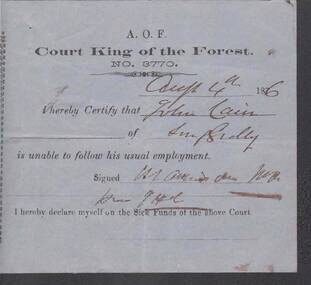 A. O. F.
Court King of the Forest.
NO. 3770.
Augt 4th 186
I hereby Certify that John Cain
of
is unable to follow his usual employment.
Signed
I hereby declare myself on the Sick Funds of the above Court